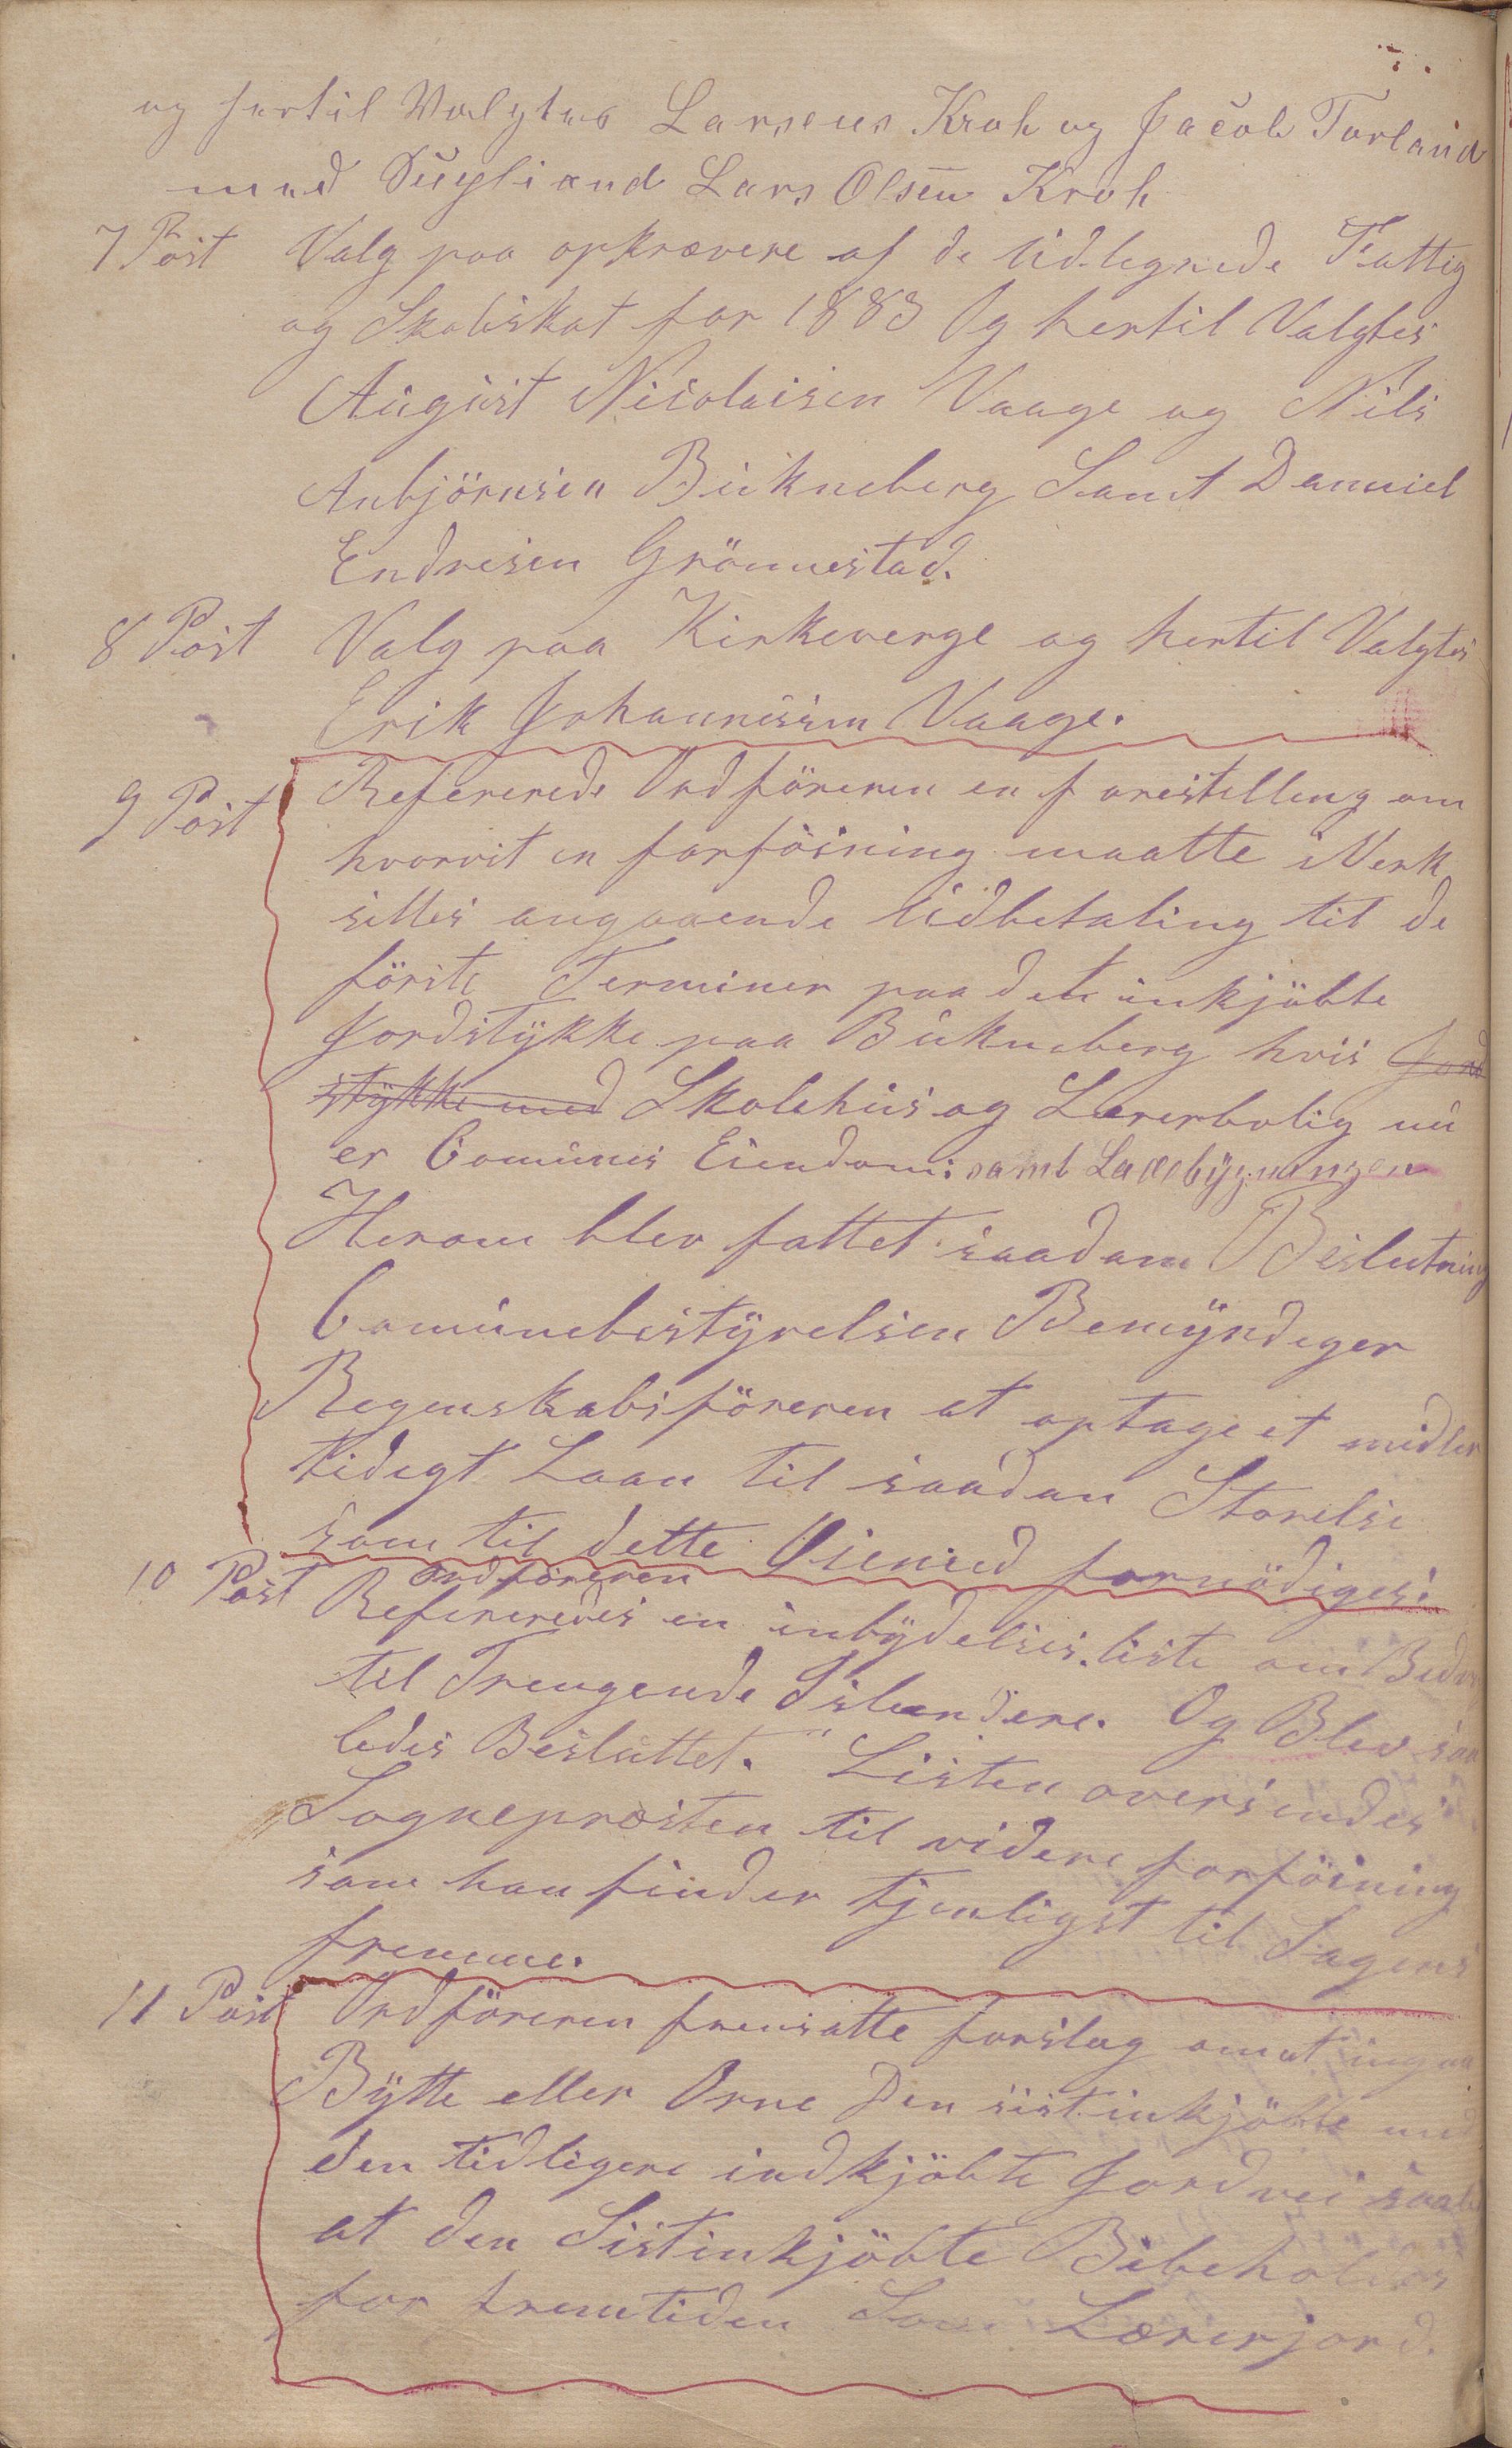 og hertil Valgtes Larseus Kroh og Jacob Torland
med Supliand Lars Olsen Kroh
7 Post Valg paa opkrævere af de Udlegnede Fattig
og Skoliskat for 1883 Og hertil Valgtes
August Nicolaisen Vaage og Nils
Anbjörnsen Bukneberg Samt Danniel
Endresen Grönnestad.
8 Post Valg paa Kirkeverge og hertil Valgtes
Erik Johannissen Vaage.
9 Post Refererede Ordföreren en forestilling om
hvorvit en forföining maatte iVerk
settes angaaende Udbetaling til de
förste Terminer paa det inkjöbte
Jordstykke paa Bukneberg hvis Jord
stykke med Skolehus og Lererbolig nu
er Comunes Eiendom: samt Ladebygningen
Herom blev fattet saadan Beslutning
Comunebestyrelsen Bemyndiger
Regenskabsföreren at optage et midler
tidigt Laan til saadan Storelse
som til dette Öiemed fornödiges:
10 Post Ordföreren
Refereredes en inbydelses liste om Bidra
til Trengende Islændere. Og Blev saa
ledes Besluttet. " Listen oversendes
Sogneprœsten til videre forföining
som han finder tjenligst til Sagens
fremme.
11 Post Ordföreren fremsatte forslag om at ingaa
Bytte eller Orne Den sistinkjöbte med
den tidligere indkjöbte Jordvei saale
at den Sistinkjöbte Bibeholdes
for fremtiden Som Lœrerjord.